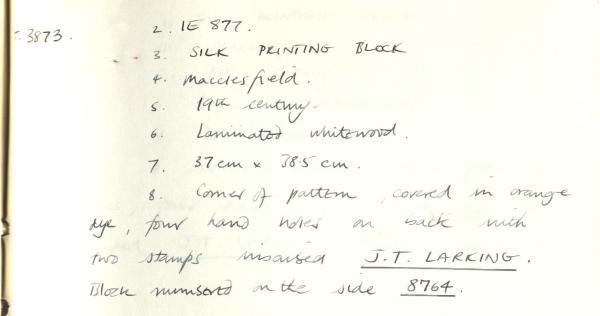 3873. 2. IE 877.
3. SILK PRINTING BLOCK
4. Macclesfield.
5. 19th century.
6. Laminated whitewood.
7. 37cm x 38.5 cm.
8. Corner of pattern, covered in orange
dye, four hand holes on back with
two stamps incised J.T. LARKING.
Block numbered on the side 8764.